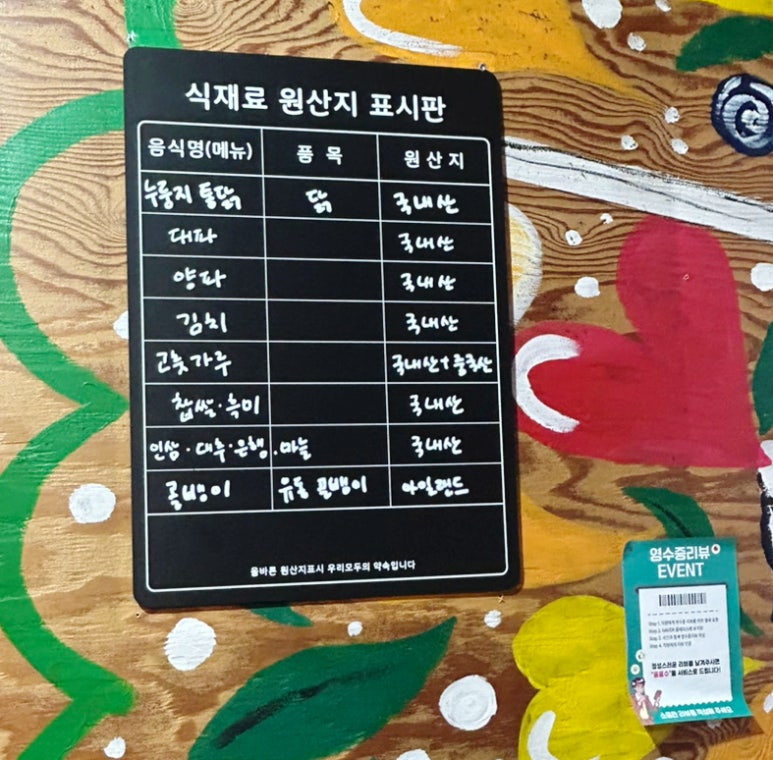 식재료 원산지 표시판
음식명(메뉴) 품 목 원 산 지
누룽지 통닭 닭 국내산
대파 국내산
양파 국내산
김치 국내산
고춧가루 국내산+중국산
찹쌀·흑미 국내산
인삼·대추·은행·마늘 국내산
골뱅이 유동 골뱅이 아일랜드
올바른 원산지표시 우리모두의 약속입니다
영수증리뷰
EVENT
정성스러운 리뷰를 남겨주시면
"음료수"를 서비스로 드립니다!